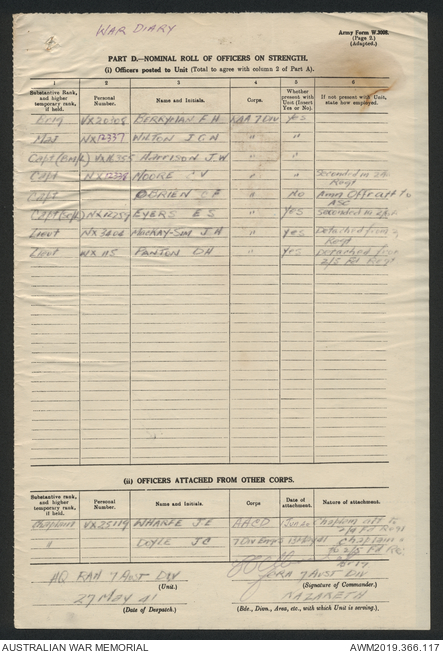 WAR DIARY
Army Form W.3008.
(Page 2.)
(Adapted.)
PART D.—NOMINAL ROLL OF OFFICERS ON STRENGTH.
(i) Officers posted to Unit (Total to agree with column 2 of Part A).
1 2 3 4 5 6
Substantive Rank, and higher temporary rank, if held. Personal Number. Name and Initials. Corps. Whether present with Unit (Insert Yes or No). If not present with Unit, state how employed.
Brig VX20308 BERRYMAN F H RAA 7 DIV yes
Maj NX12337 WILTON J G N " "
Capt J W " "
Capt MOORE C V " " Seconded in 2/5
Regt
Capt OBRIEN O F " No Amn Offr att to
ASC
Capt EYERS E S " Yes Seconded in
Lieut MURRAY-SIM J H " yes Detached from
Regt
Lieut WX 115 PANTON D H " Yes Detached from
2/5 Fd Regt
(ii) OFFICERS ATTACHED FROM OTHER CORPS.
Substantive rank, and higher temporary rank, if held. Personal Number. Name and Initials. Corps Date of attachment. Nature of attachment.
Chaplain VX25119 WHARFE J E AACD Chaplain att to
Regt
" DOYLE J C Chaplain
to 2/5 Fd Reg
HQ RAA 7 AUST DIV
(Unit.)
CRA 7 AUST DIV
(Signature of Commander.)
27 MAY 41
(Date of Despatch.)
NAZARETH
(Bde., Divn., Area, etc., with which Unit is serving.)
AUSTRALIAN WAR MEMORIAL
AWM2019.366.117